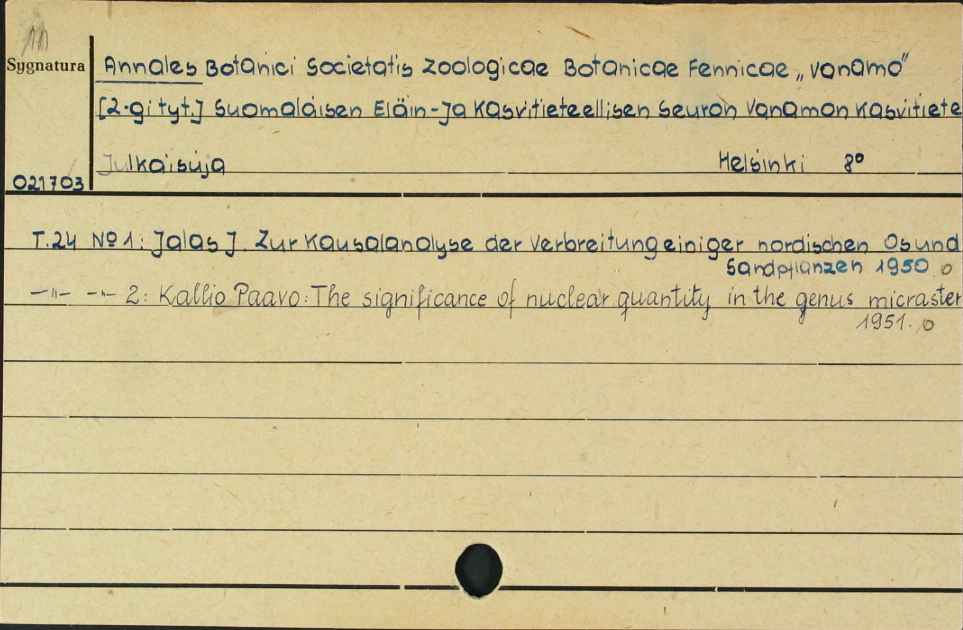 Sygnatura
Annales Botanici Societatis Zoologicae Botanicae Fennicae „Vanamo"
[2-gi tyt.] Suomaláisen Eläin-Ja Kasvitieteellisen Seuron Vanamon Kasvitiete
Julkaisuja Helsinki 8º
021703
T.24 № 1: Jalas J. Zur Kausalanalyse der Verbreitung einiger nordischen Os und
Sandpflanzen 1950 o
—"— —"— 2: Kallio Paavo: The significance of nuclear quantity in the genus micraster
1951. o